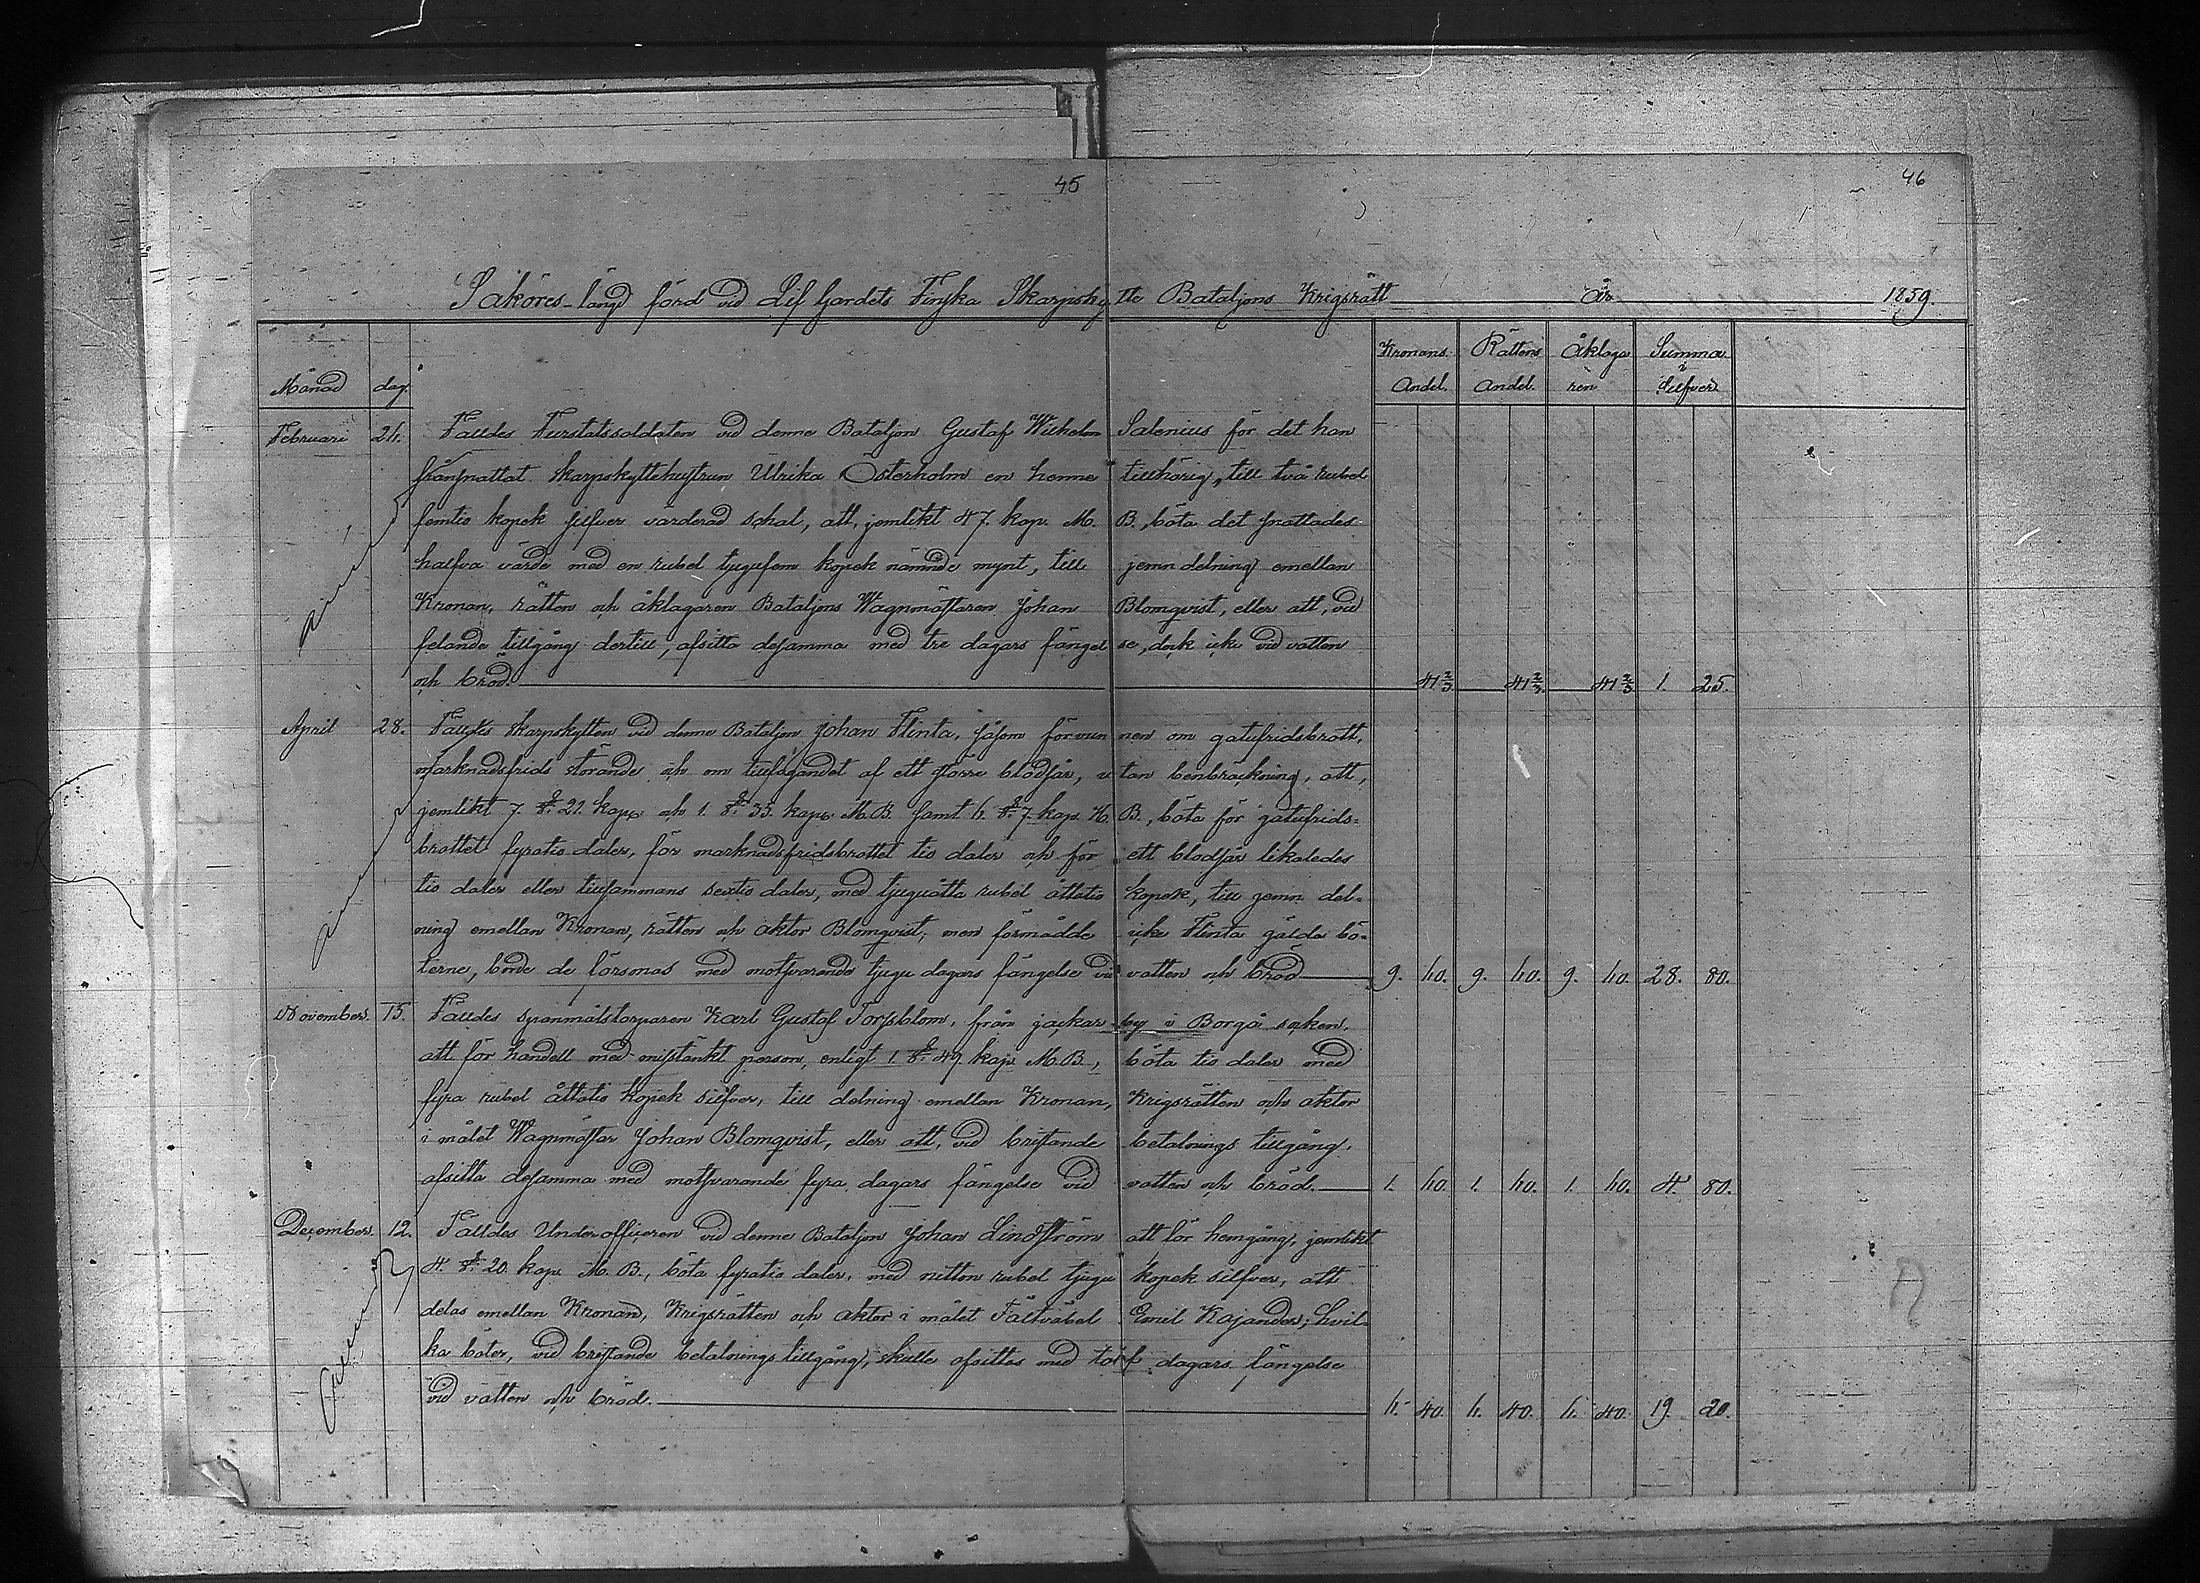 45
46
Saköres-längd förd vid Lif Gardets Finska Skarpskytte Bataljons Krigsrätt år 1859.
Månad dag. Kronans Andel. Rättens Andel. Åklagaren Summa i Silfver
Februari 26. Fälldes Furstatssoldaten vid denne Bataljon Gustaf Wilhelm Salenius för det han
frånsnattat Skarpskyttehustrun Ulrika Österholm en henne tillhörig, till två rubel
femtio kopek silfver värderad schal, att, jemlikt 47. kap. M. B., böta det snattades
halfva värde med en rubel tjugufem kopek nämnde mynt, till jemn delning emellan
Kronan, rätten och åklagaren Bataljons Wagnmästaren Johan Blomqvist, eller att, vid
felande tillgång dertill, afsitta desamma med tre dagars fängelse, dock icke vid vatten
och bröd. 41 2/3 41 2/3. 41 2/3 1. 25.
April 28. Fälldes Skarpskytten vid denne Bataljon Johan Flinta, såsom förvunnen om gatufridsbrott,
marknadsfrids störande och om tillfogandet af ett större blodsår, utan benbräckning, att,
jemlikt 7. §. 21. kap. och 1. §. 35. kap. M. B. samt 6. §. 7. kap. H. B., böta för gatufrids-
brottet fyratio daler, för marknadsfridsbrottet tio daler och för ett blodsår likaledes
tio daler eller tillsammans sextio daler, med tjuguåtta rubel åttatio kopek, till jemn del-
ning emellan Kronan, rätten och aktor Blomqvist; men förmådde icke Flinta gälda bö-
terne, borde de försonas med motsvarande tjugu dagars fängelse vid vatten och bröd 9. 60. 9. 60. 9. 60. 28. 80.
November. 15. Fälldes sqvanmålstorparen Karl Gustaf Torpsblom, från Jackarby i Borgå socken,
att för handell med misstänkt person, enligt 1. §. 49. kap. M. B., böta tio daler med
fyra rubel åttatio kopek silfver, till delning emellan Kronan, Krigsrätten och aktor
i målet Wagnmästar Johan Blomqvist, eller att, vid bristande betalnings tillgång,
afsitta desamma med motsvarande fyra dagars fängelse vid vatten och bröd. 1. 60. 1. 60. 1. 60. 4. 80.
December. 12. Fälldes Underofficeren vid denne Bataljon Johan Lindström att för hemgång, jemlikt
4. §. 20. kap. M. B., böta fyratio daler, med nitton rubel tjugu kopek silfver, att
delas emellan Kronan, Krigsrätten och aktor i målet Fältväbel Emil Kajander; hvil-
ka böter, vid bristande betalnings tillgång, skulle afsittas med tolf dagars fängelse
vid vatten och bröd. 6. 40. 6. 40. 6. 40. 19. 20.